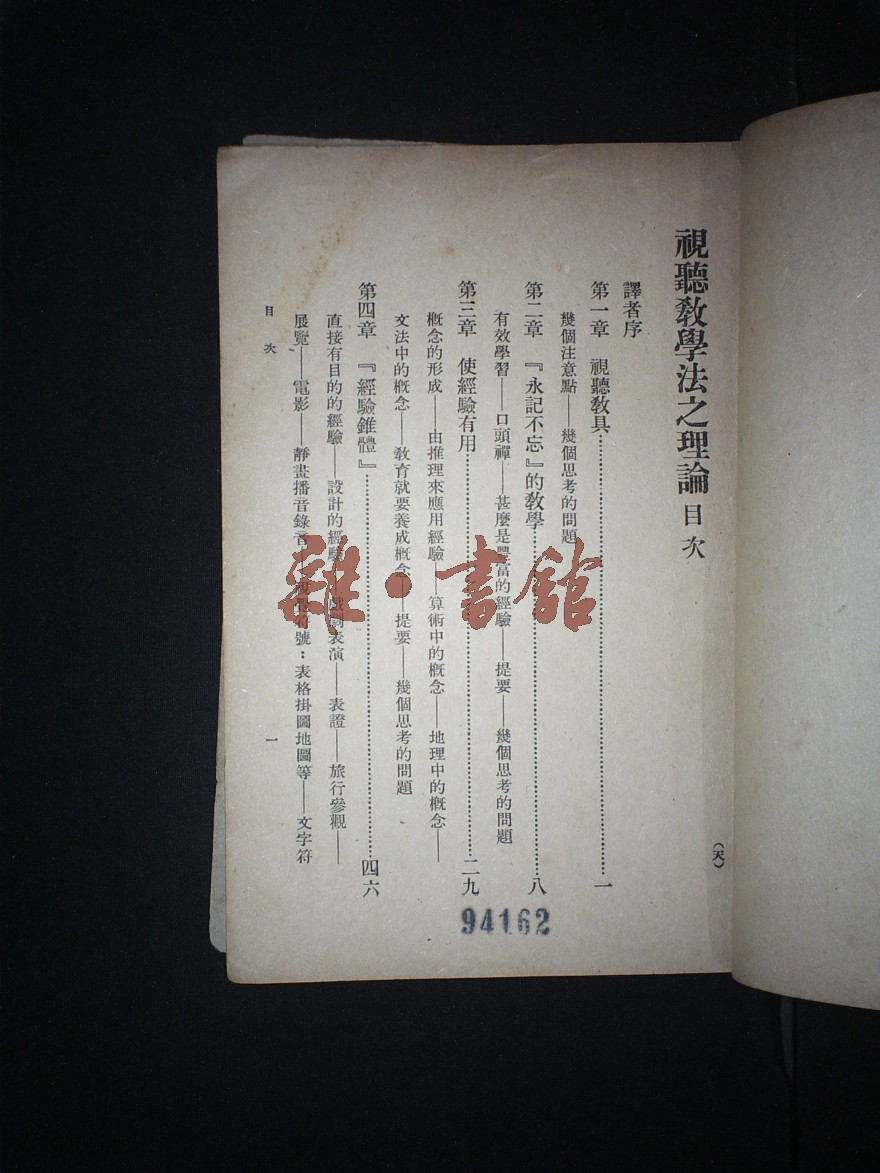 視聽敎學法之理論目次
(天)
譯者序
第一章 視聽敎具……一
幾個注意點——幾個思考的問題
第二章 『永記不忘』的敎學……八
有效學習——口頭禪——甚麼是豐富的經驗——提要——幾個思考的問題
第三章 使經驗有用……二九
概念的形成——由推理來應用經驗——算術中的概念——地理中的概念——
文法中的概念——敎育就要養成概念——提要——幾個思考的問題
第四章 『經驗錐體』……四六
直接有目的的經驗——設計的經驗——戲劇表演——表證——旅行參觀——
展覽——電影——靜畫播音錄音——符號：表格掛圖地圖等——文字符
目次
一
94162
雜·書館